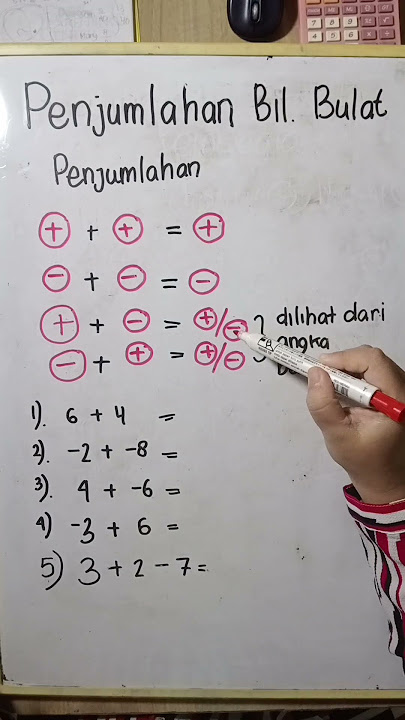 Penjumlahan Bil. Bulat
Penjumlahan
+ + + = +
- + - = -
+ + - = +/- dilihat dari
- + + = +/- angka
1). 6 + 4 =
2). -2 + -8 =
3). 4 + -6 =
4) -3 + 6 =
5) 3 + 2 - 7 =